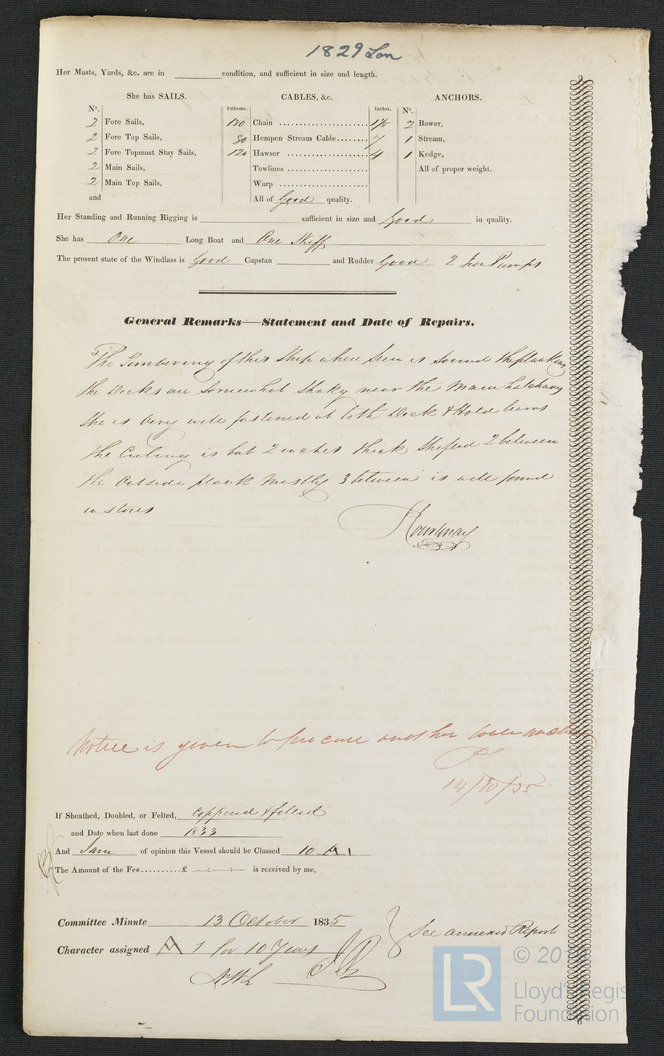 1829 Lon
Her Masts, Yards, &c. are in condition, and sufficient in size and length.
She has SAILS. CABLES, &c. ANCHORS.
Nº. Fathoms. Inches. Nº.
2 Fore Sails, 120 Chain 1 3/8 2 Bower,
2 Fore Top Sails, 80 Hempen Stream Cable 7 1 Stream,
2 Fore Topmast Stay Sails, 120 Hawser 4 1 Kedge,
2 Main Sails, Towlines All of proper weight.
2 Main Top Sails, Warp
and All of Good quality.
Her Standing and Running Rigging is sufficient in size and Good in quality.
She has One Long Boat and One Skiff
The present state of the Windlass is Good Capstan and Rudder Good 2 Iron Pumps
General Remarks—Statement and Date of Repairs.
The Timbering of this Ship when seen is sound the planking
the Decks are somewhat shaky near the Main hatchway
She is very well fastened at both Deck & Hold beams
the Ceiling is but 2 inches thick Shifted 2 between
the outside plank mostly 3 between is well found
in stores
Courtenay
Notice is given to procure another bower anchor
14/10/35
If Sheathed, Doubled, or Felted, coppered & felted
and Date when last done 1833
And I am of opinion this Vessel should be Classed 10 A 1
The Amount of the Fee £ is received by me,
Committee Minute 13 October 1835
Character assigned A 1 for 10 Years
See annexed Report
LR
Lloyd's Register
Foundation